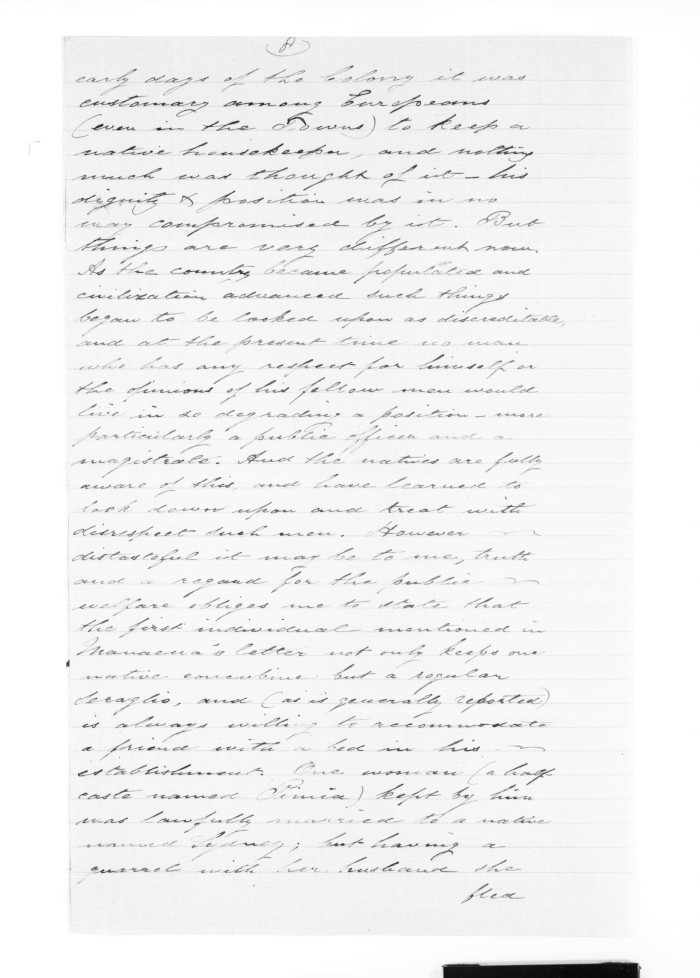 (8)
early days of the Colony it was
customary among Europeans
(even in the Towns) to keep a
native housekeeper, and nothing
much was thought of it – his
dignity & position was in no
way compromised by it. But
things are very different now.
As the country became populated and
civilization advanced such things
began to be looked upon as discreditable,
and at the present time no man
who has any respect for himself or
the opinions of his fellow man would
live in so degrading a position – more
particularly a public officer and a
magistrate. And the natives are fully
aware of this, and have learned to
look down upon and treat with
disrespect such men. However
distasteful it may be to me, truth
and a regard for the public
welfare obliges me to state that
the first individual mentioned in
Manaena's letter not only keeps one
native concubine but a regular
Seraglio, and (as is generally reported)
is always willing to accommodate
a friend with a bed in his
establishment. One woman (a half
caste named Pimia) kept by him
was lawfully married to a native
named Sydney; but having a
quarrel with her husband she
fled